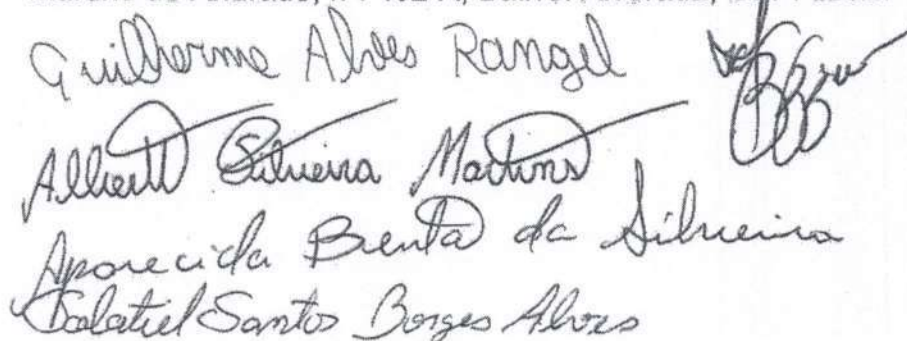 Guilherme Alves Rangel
Albertt Silveira Martins
Aparecida Benta da Silveira
Salatiel Santos Borges Alves